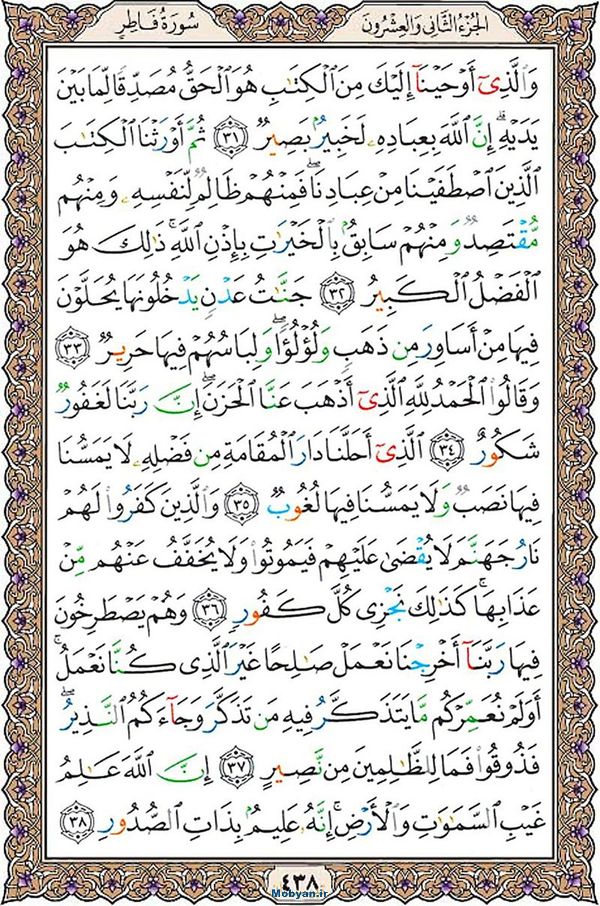 الجُزْءُ الثَّانِي وَالعِشْرُونَ
سُورَةُ فَاطِر
وَٱلَّذِىٓ أَوْحَيْنَآ إِلَيْكَ مِنَ ٱلْكِتَٰبِ هُوَ ٱلْحَقُّ مُصَدِّقًا لِّمَا بَيْنَ
يَدَيْهِ ۗ إِنَّ ٱللَّهَ بِعِبَادِهِۦ لَخَبِيرٌۢ بَصِيرٌ ٣١ ثُمَّ أَوْرَثْنَا ٱلْكِتَٰبَ
ٱلَّذِينَ ٱصْطَفَيْنَا مِنْ عِبَادِنَا ۖ فَمِنْهُمْ ظَالِمٌ لِّنَفْسِهِۦ وَمِنْهُم
مُّقْتَصِدٌ وَمِنْهُمْ سَابِقٌۢ بِٱلْخَيْرَٰتِ بِإِذْنِ ٱللَّهِ ۚ ذَٰلِكَ هُوَ
ٱلْفَضْلُ ٱلْكَبِيرُ ٣٢ جَنَّٰتُ عَدْنٍ يَدْخُلُونَهَا يُحَلَّوْنَ
فِيهَا مِنْ أَسَاوِرَ مِن ذَهَبٍ وَلُؤْلُؤًا ۖ وَلِبَاسُهُمْ فِيهَا حَرِيرٌ ٣٣
وَقَالُوا۟ ٱلْحَمْدُ لِلَّهِ ٱلَّذِىٓ أَذْهَبَ عَنَّا ٱلْحَزَنَ ۖ إِنَّ رَبَّنَا لَغَفُورٌ
شَكُورٌ ٣٤ ٱلَّذِىٓ أَحَلَّنَا دَارَ ٱلْمُقَامَةِ مِن فَضْلِهِۦ لَا يَمَسُّنَا
فِيهَا نَصَبٌ وَلَا يَمَسُّنَا فِيهَا لُغُوبٌ ٣٥ وَٱلَّذِينَ كَفَرُوا۟ لَهُمْ
نَارُ جَهَنَّمَ لَا يُقْضَىٰ عَلَيْهِمْ فَيَمُوتُوا۟ وَلَا يُخَفَّفُ عَنْهُم مِّنْ
عَذَابِهَا ۚ كَذَٰلِكَ نَجْزِى كُلَّ كَفُورٍ ٣٦ وَهُمْ يَصْطَرِخُونَ
فِيهَا رَبَّنَآ أَخْرِجْنَا نَعْمَلْ صَٰلِحًا غَيْرَ ٱلَّذِى كُنَّا نَعْمَلُ ۚ
أَوَلَمْ نُعَمِّرْكُم مَّا يَتَذَكَّرُ فِيهِ مَن تَذَكَّرَ وَجَآءَكُمُ ٱلنَّذِيرُ ۖ
فَذُوقُوا۟ فَمَا لِلظَّٰلِمِينَ مِن نَّصِيرٍ ٣٧ إِنَّ ٱللَّهَ عَٰلِمُ
غَيْبِ ٱلسَّمَٰوَٰتِ وَٱلْأَرْضِ ۚ إِنَّهُۥ عَلِيمٌۢ بِذَاتِ ٱلصُّدُورِ ٣٨
٤٣٨
Mobyan.ir